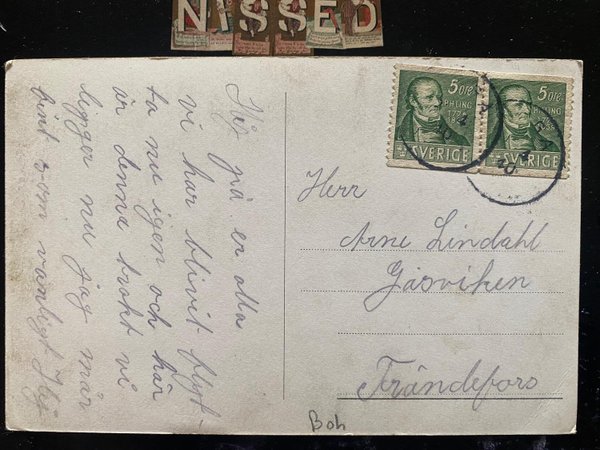 NISSED
Hej på er alla
vi har blivit flyt-
ta nu igen och här
är denna trakt vi
ligger nu jag mår
bra som vanligt Hej
5 ÖRE
PHLING
SVERIGE
5 ÖRE
PHLING
SVERIGE
Herr
Arne Lindahl
Gåsviken
Frändefors
Boh